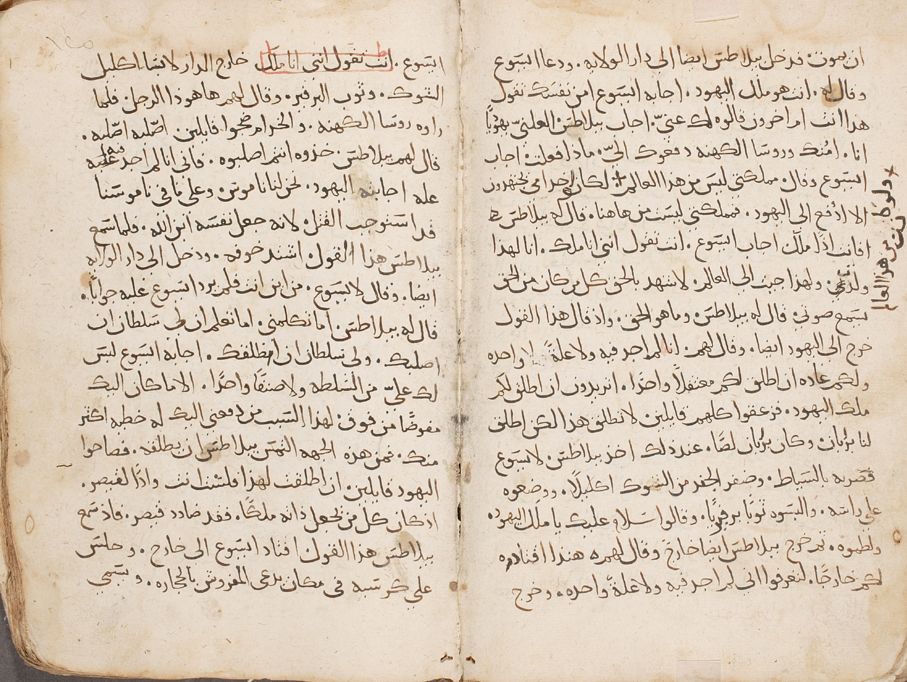 ان يموت فدخل بيلاطس ايضا الى دار الولايه. ودعا ايسوع
وقال له. انت هو ملك اليهود. اجابه ايسوع امن نفسك تقول
هذا انت ام اخرون قالوه لك عني. اجاب بيلاطس العلني يهوديا
انا. امتك وروسا الكهنه دفعوك الي. ماذا فعلت اجاب
ايسوع وقال. مملكتي ليس من هذا العالم لكان خدامي يجتهدون
الا ادفع الى اليهود. فمملكتي ليست من هاهنا. قال له بيلاطس
افانت اذا ملك اجاب ايسوع. انت تقول انني انا ملك. انا لهذا
ولدت ولهذا جيت الى العالم. لاشهد بالحق كل من كان من الحق
يسمع صوتي. قال له بيلاطس وما هو الحق. واذ قال هذا القول
خرج الى اليهود ايضا. وقال لهم. انا لم اجد فيه ولا علة واحده
ولكم عاده ان اطلق لكم معتقلا واحدا. اتريدون ان اطلق لكم
ملك اليهود. فزعقوا كلهم قايلين. لا تطلق هذا لكن اطلق
لنا برابان. وكان برابان لصا. عند ذلك اخذ بيلاطس لايسوع
فضربه بالسياط. وضفر الجند من الشوك اكليلا. ووضعوه
على راسه. والبسوه ثوبا برفيريا. وقالوا سلام عليك يا ملك اليهود.
ولطموه. ثم خرج بيلاطس ايضا خارج وقال لهم هنذا اقتاده
لكم خارجا. لتعرفوا اني لم اجد فيه ولا علة واحده. وخرج
ولو كانت من هذا العالم
ايسوع. انت تقول انني انا ملك. خارج الدار لابسا اكليل
الشوك. وثوب البرفير. وقال لهم ها هو ذا الرجل. فلما
راوه روسا الكهنه. والخدام ضجوا قايلين. اصلبه اصلبه.
قال لهم بيلاطس. خذوه انتم اصلبوه. فاني انا لم اجد عليه
عله اجابته اليهود. نحن لنا ناموس. وعلى ما في ناموسنا
قد استوجب القتل. لانه جعل نفسه ابن الله. فلما سمع
بيلاطس هذا القول. اشتد خوفه. ودخل الى دار الولايه
ايضا. وقال لايسوع. من اين انت فلم يرد ايسوع عليه جوابا.
قال له بيلاطس اما تكلمني. اما تعلم ان لي سلطان ان
اصلبك. ولي سلطان ان اطلقك. اجابه ايسوع ليس
لك علي من السلطه ولا صنفا واحدا. الا ما كان اليك
مفوضا من فوق لهذا السبب من دفعني اليك له خطيه اكثر
منك. فمن هذه الجهه التمس بيلاطس ان يطلقه. فصاحوا
اليهود قايلين. ان اطلقت لهذا فلست انت وادا لقيصر.
اذ كان كل من يجعل ذاته ملكا. فقد ضادد قيصر. فاذ سمع
بيلاطس هذا القول اقتاد ايسوع الى خارج. وجلس
على كرسيه في مكان يدعى المفروش بالحجاره. ويسمي